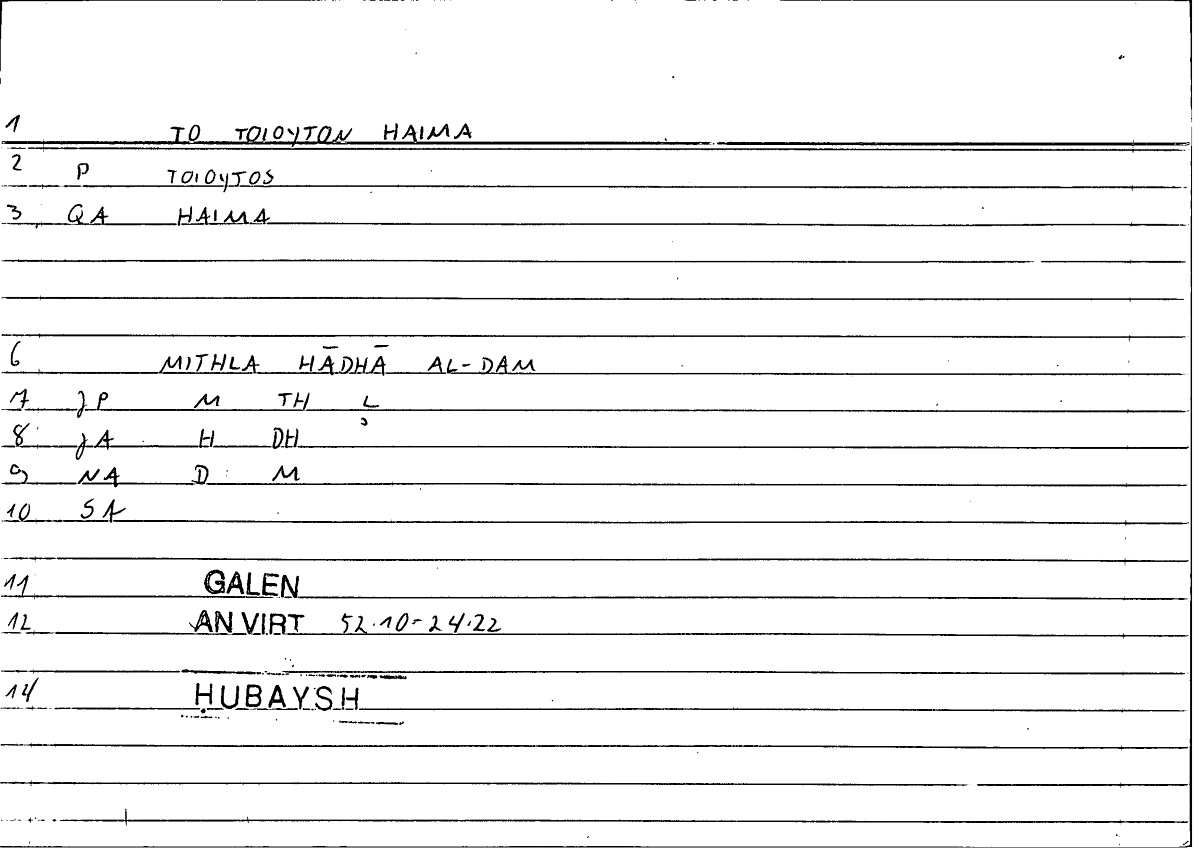 1 TO TOIOYTON HAIMA
2 P TOIOYTOS
3 QA HAIMA
6 MITHLA HĀDHĀ AL-DAM
7 JP M TH L
8 JA H DH
9 NA D M
10 SA
11 GALEN
12 AN VIRT 52.10-24.22
14 ḤUBAYSH